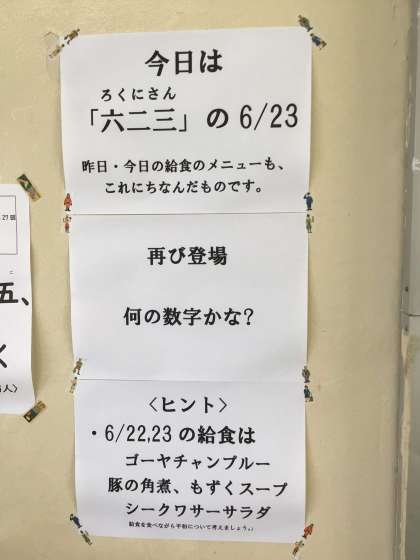 今日は
ろくにさん
「六二三」の 6/23
昨日・今日の給食のメニューも、
これにちなんだものです。
再び登場
何の数字かな?
〈ヒント〉
・6/22,23 の給食は
ゴーヤチャンプルー
豚の角煮、もずくスープ
シークワサーサラダ
給食を食べながら平和について考えましょう。
27
五、
く
人〉